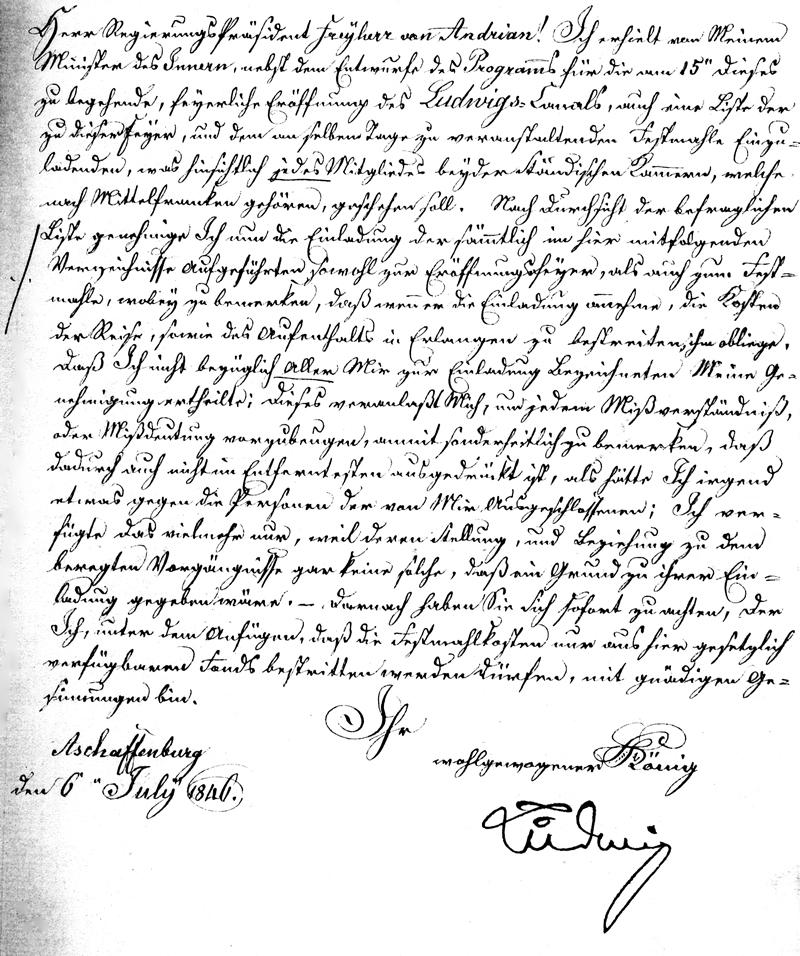 Herr Regierungs Präsident Freyherr von Andrian! Ich erhielt von Meinem
Minister des Innern, nebst dem Entwurfe des Programms für die am 15" dieses
zu begehende, feyerliche Eröffnung des Ludwigs-Canals, auch eine Liste der
zu dieser Feyer, und dem an selben Tage zu veranstaltenden Festmahle Einzu-
ladenden, was hinsichtlich jedes Mitgliedes beyder Ständischen Kammern, welche
nach Mittelfranken gehören, geschehen soll. Nach Durchsicht der befraglichen
Liste genehmige Ich nun die Einladung der sämmtlich im hier mitfolgenden
Verzeichnisse Aufgeführten, sowohl zur Eröffnungsfeyer, als auch zum Fest-
mahle, wobey zu bemerken, daß wenn er die Einladung annehme, die Kosten
der Reise, sowie des Aufenthalts in Erlangen zu bestreiten, ihm obliege.
Daß Ich nicht bezüglich Aller Mir zur Einladung Bezeichneten Meine Ge-
nehmigung ertheilte; dieses veranlaßt Mich, um jedem Mißverständniß,
oder Mißdeutung vorzubeugen, anmit sonderheitlich zu bemerken, daß
dadurch auch nicht im Entferntesten ausgedrückt ist, als hätte Ich irgend
etwas gegen die Personen der von Mir Ausgeschlossenen; Ich ver-
fügte das vielmehr nur, weil deren Stellung, und Beziehung zu dem
beregten Vorgängnisse gar keine solche, daß ein Grund zu ihrer Ein-
ladung gegeben wäre. – Darnach haben Sie Sich sofort zu achten, Der
Ich, unter dem Anfügen, daß die Festmahlkosten nur aus hier gesetzlich
verfügbaren Fonds bestritten werden dürfen, mit gnädigen Ge-
sinnungen bin.
Ihr
Aschaffenburg
wohlgewogener König
den 6" July 1846.
Ludwig